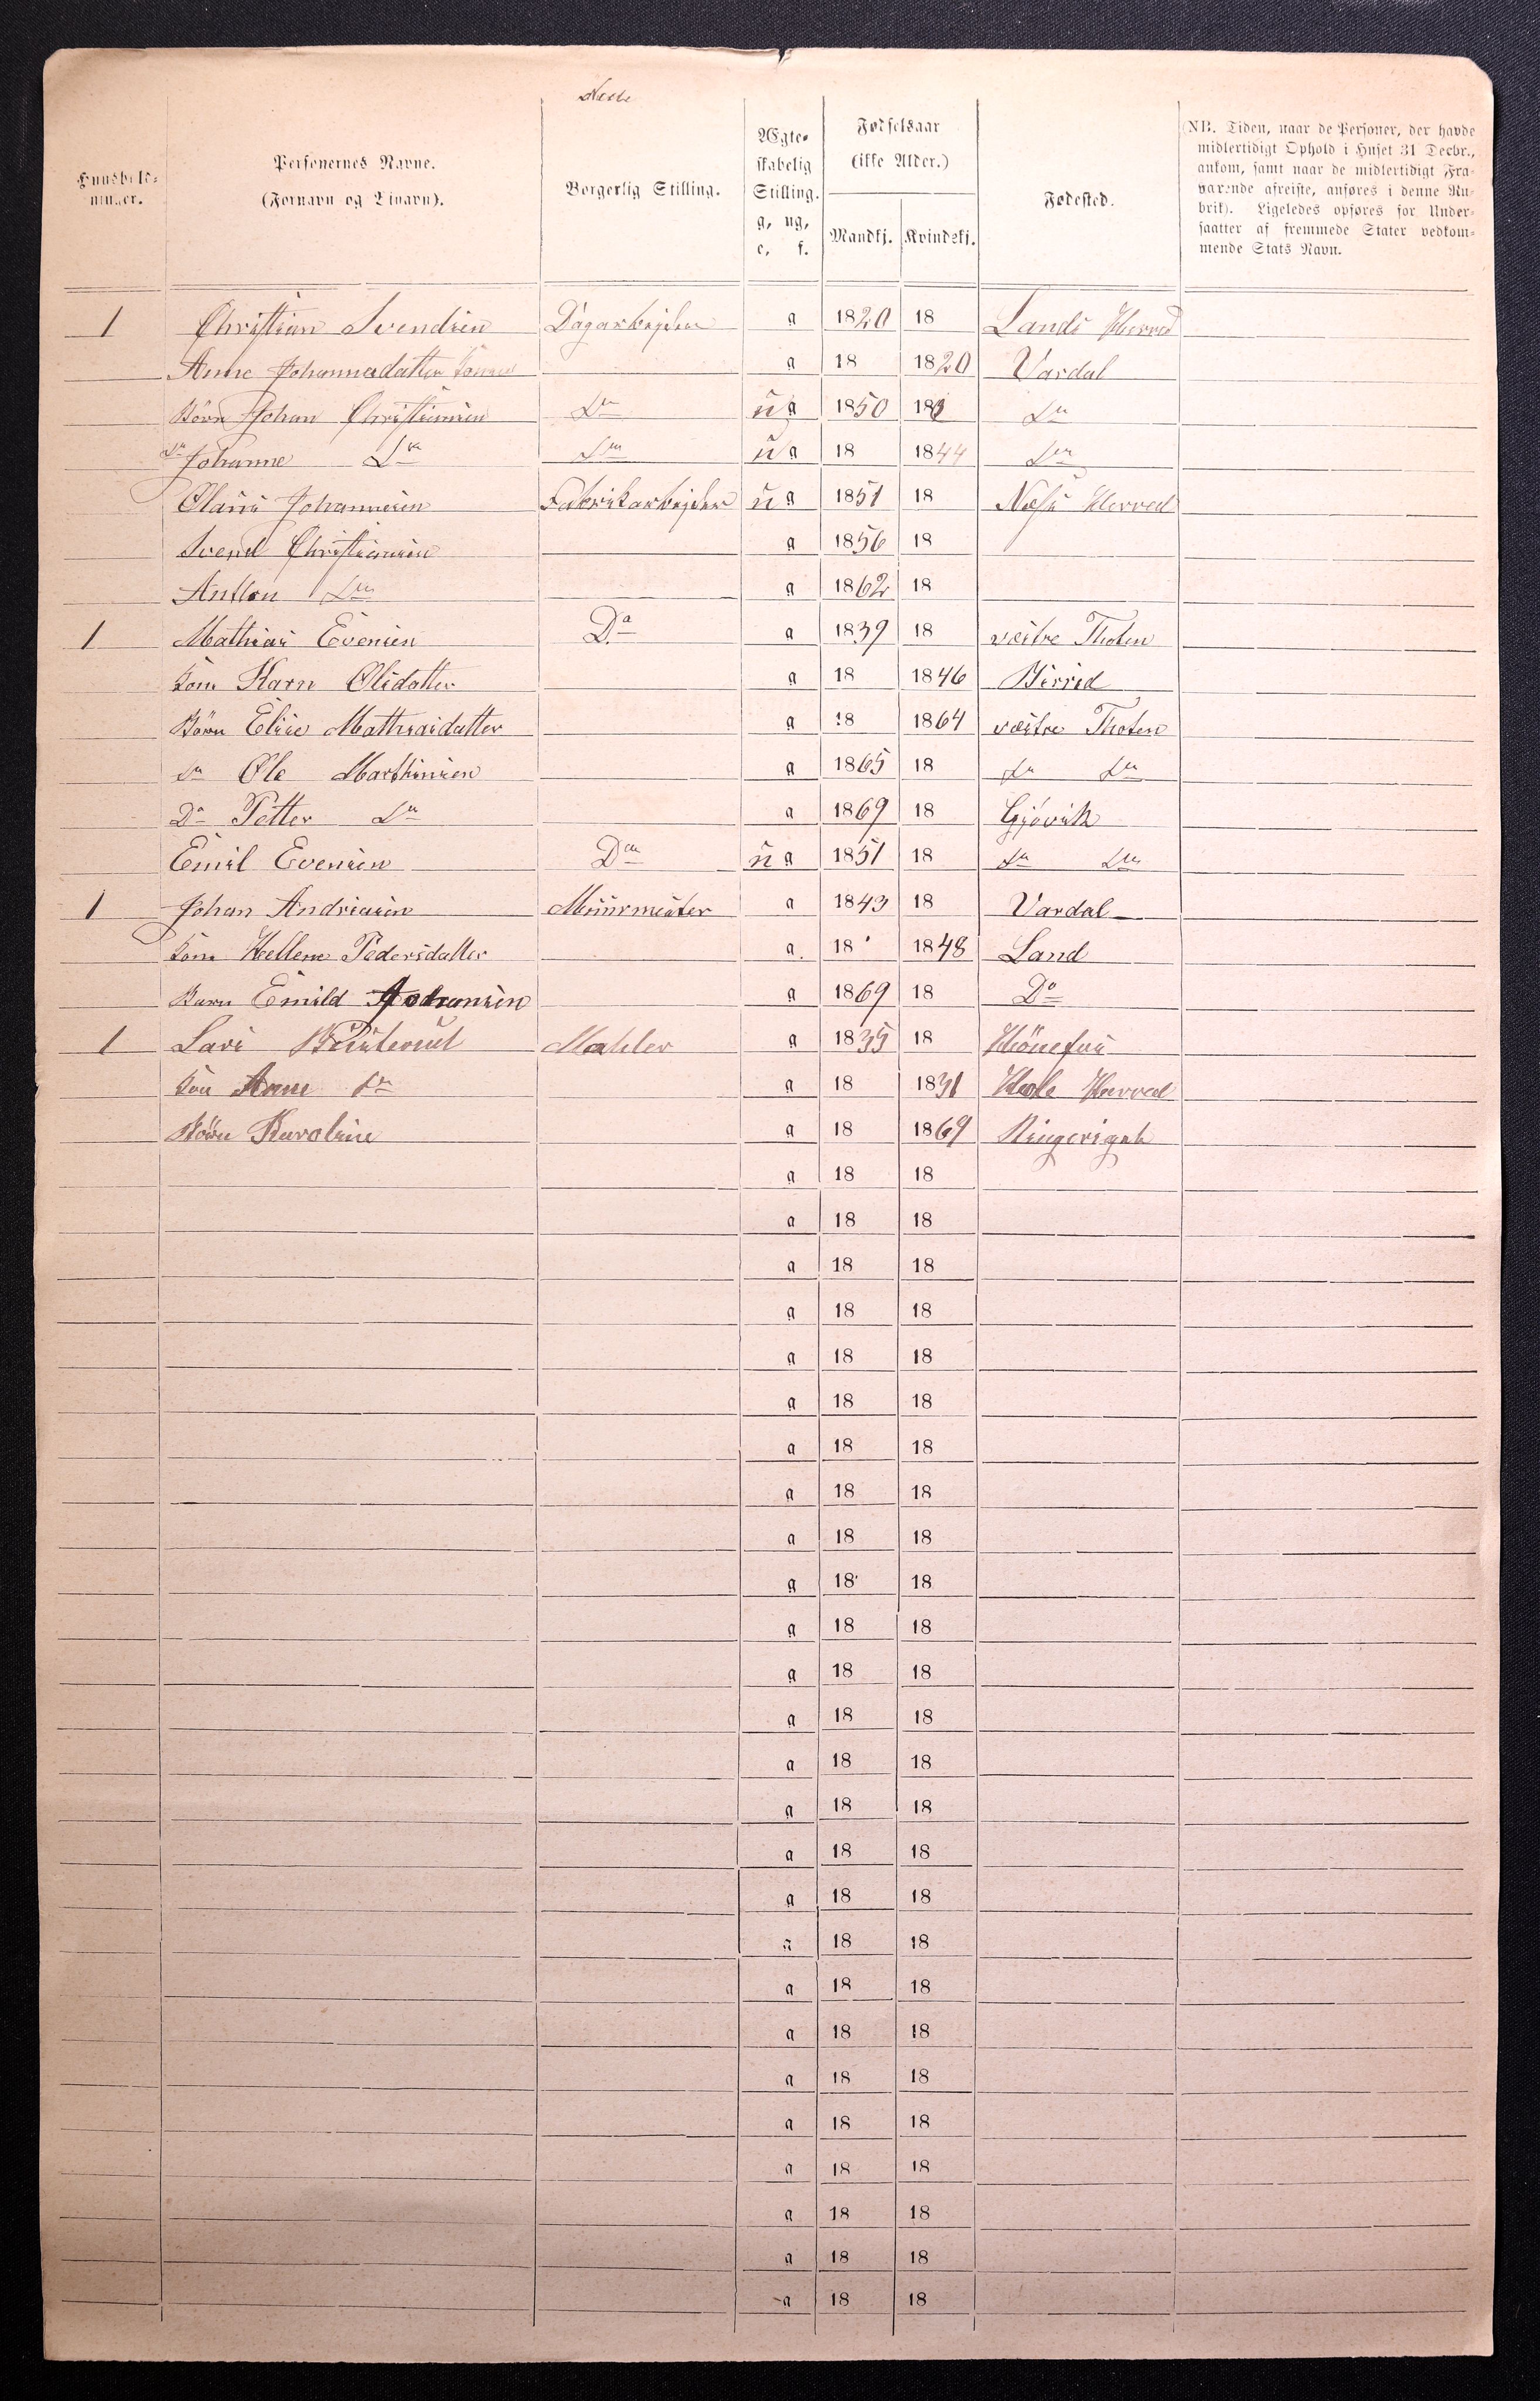 Huusholds-
nummer.
Personernes Navne.
(Fornavn og Tilnavn).
Borgerlig Stilling.
Ægte-
skabelig
Stilling.
g, ug,
e, f.
Fødselsaar
(ikke Alder.)
Mandkj. Kvindekj.
Fødested.
(NB. Tiden, naar de Personer, der havde
midlertidigt Ophold i Huset 31 Decbr.,
ankom, samt naar de midlertidigt Fra-
værende afreiste, anføres i denne Ru-
brik). Ligeledes opføres for Under-
saatter af fremmede Stater vedkom-
mende Stats Navn.
1 Christian Svendsen Dagarbejder g 1820 18 Lands Herred
Anne Johannesdatter g 18 1820 Vardal
Börn Johan Christiansen Do ug 1850 18 Do
Do Johanne Do Do ug 18 1844 Do
Olaus Johannesen Fabrikarbejder ug 1851 18 Næss Herred
Svend Christiansen g 1856 18
Antton Do g 1862 18
1 Mathias Evensen Do g 1839 18 vestre Thoten
Kone Karn Olsdatter g 18 1846 Birrid
Börn Elise Mathiasdatter g 18 1864 vestre Thoten
Do Ole Marthinsen g 1865 18 Do Do
Do Petter Do g 1869 18 Gjövik
Emil Evensen Do ug 1851 18 Do Do
1 Johan Andriasen Muurmester g 1843 18 Vardal
Kone Hellene Pedersdatter g 18 1848 Land
Barn Emild Johansen g 1869 18 Do
1 Lars Mahler g 1835 18 Hönefos
Kone Anne Do g 18 1831 Hole Herred
Börn Karoline g 18 1869 Ringerigeh
g 18 18
g 18 18
g 18 18
g 18 18
g 18 18
g 18 18
g 18 18
g 18 18
g 18 18
g 18 18
g 18 18
g 18 18
g 18 18
g 18 18
g 18 18
g 18 18
g 18 18
g 18 18
g 18 18
g 18 18
g 18 18
g 18 18
g 18 18
g 18 18
g 18 18
g 18 18